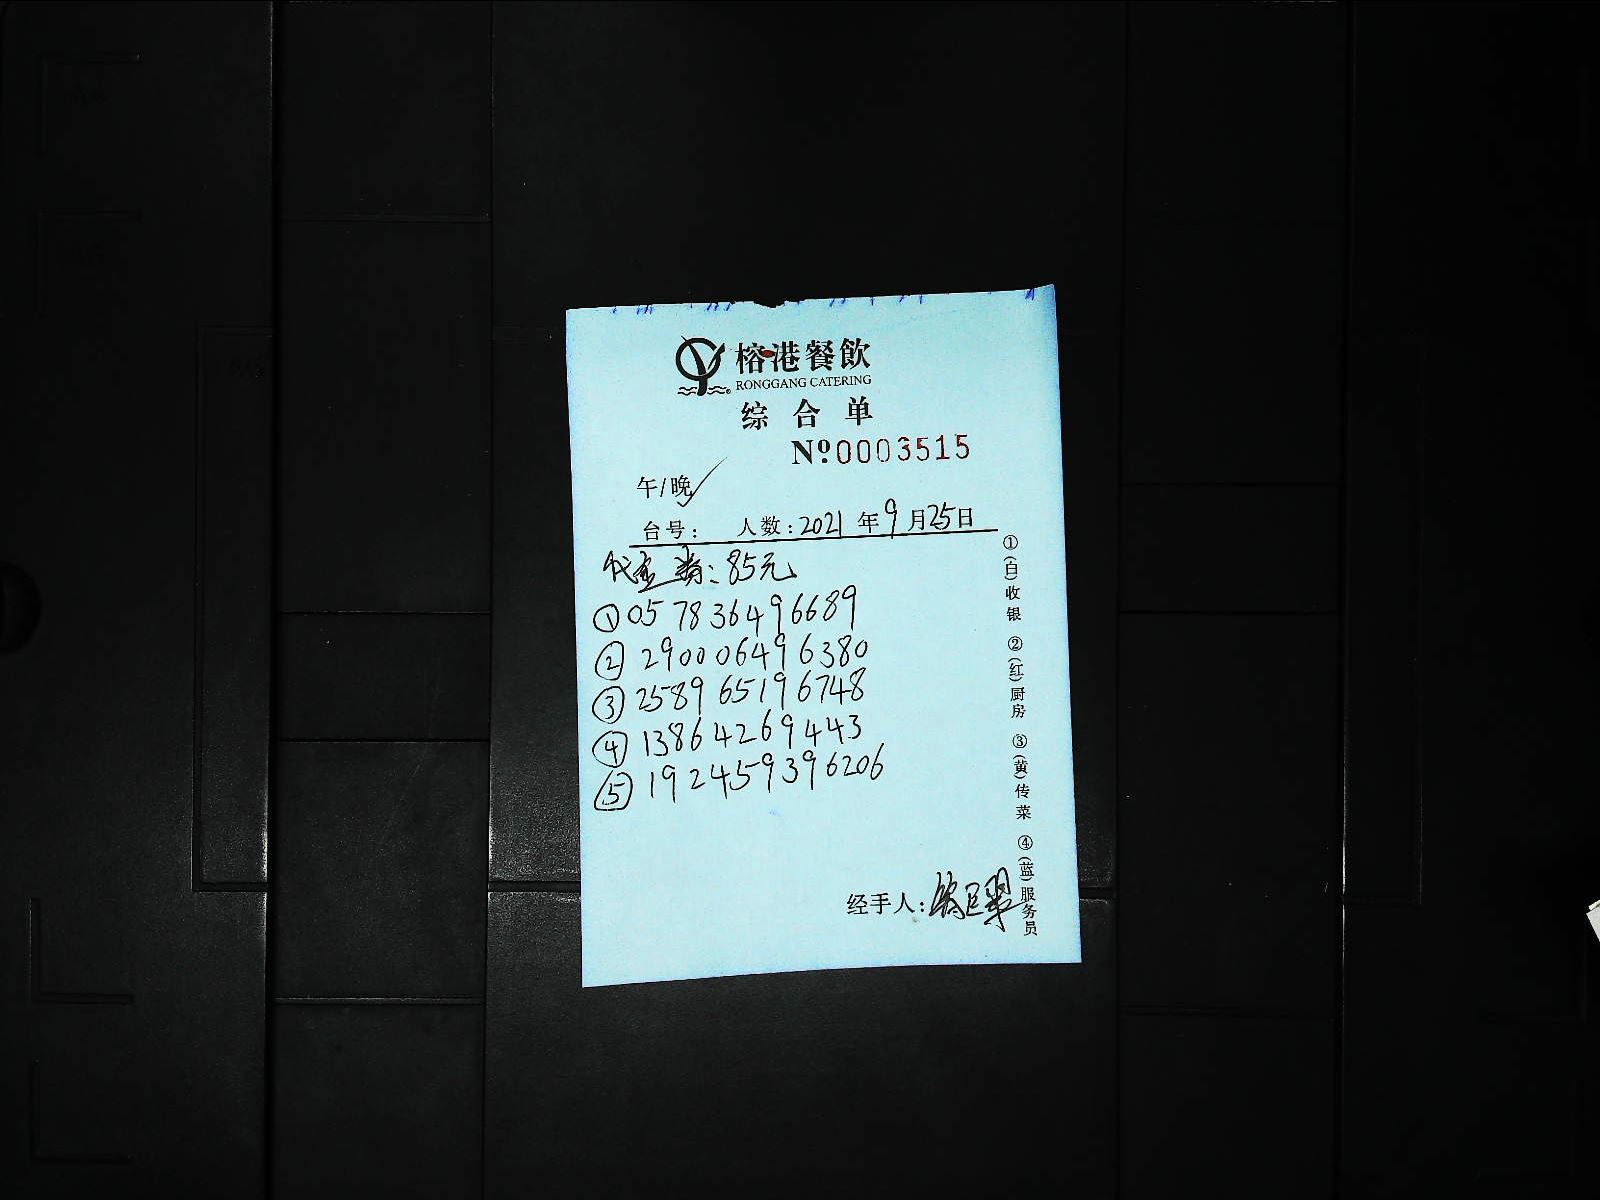 榕港餐飲
RONGGANG CATERING
综合单
Nº0003515
午/晚✓
台号: 人数:2021年9月25日
代金券:85元
①057836496689
②290006496380
③258965196748
④13864269443
⑤192459396206
经手人:
①(白)收银 ②(红)厨房 ③(黄)传菜 ④(蓝)服务员